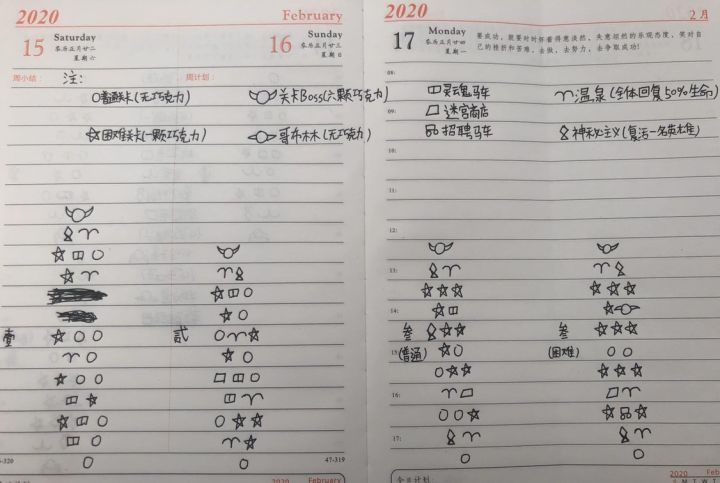 2020 February
15 Saturday
零历正月廿二
星期六
16 Sunday
零历正月廿三
星期日
周小结: 注:
周计划:
普通关卡(无巧克力)
关卡Boss(六颗巧克力)
困难关卡(一颗巧克力)
哥布林(无巧克力)
壹
贰
-320
47-319
2020 February
2020 2月
17 Monday
零历正月廿四
星期一
要成功，就要时时怀着得意淡然、失意坦然的乐观态度，笑对自
己的挫折和苦难，去做，去努力，去争取成功！
08:
灵魂马车
温泉(全体回复50%生命)
09:
迷宫商店
招聘马车
神秘主义(复活一名英雄)
10:
11:
12:
13:
14:
叁
叁
15:
(普通)
(困难)
16:
17:
今日计划
2020 Feb
S M T W T